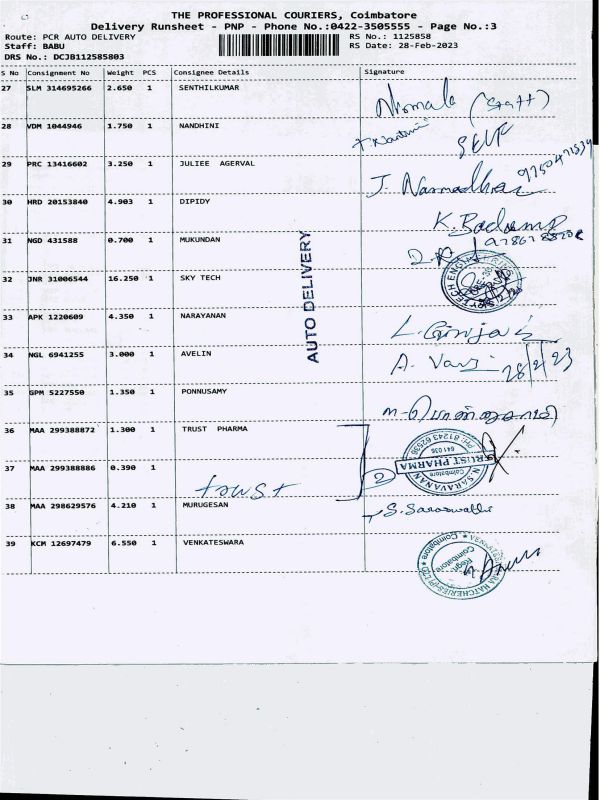 THE PROFESSIONAL COURIERS, Coimbatore
Delivery Runsheet - PNP - Phone No.:0422-3505555 - Page No.:3
Route: PCR AUTO DELIVERY RS No.: 1125858
Staff: BABU RS Date: 28-Feb-2023
DRS No.: DCJB112585803
S No Consignment No Weight PCS Consignee Details Signature
27 SLM 314695266 2.650 1 SENTHILKUMAR Nirmala (Staff)
28 VDM 1044946 1.750 1 NANDHINI SELF
29 PRC 13416602 3.250 1 JULIEE AGERVAL J. Narmadha
30 HRD 20153840 4.903 1 DIPIDY
31 NGD 431588 0.700 1 MUKUNDAN
32 JNR 31006544 16.250 1 SKY TECH
33 APK 1220609 4.350 1 NARAYANAN
34 NGL 6941255 3.000 1 AVELIN 28/2/23
35 GPM 5227550 1.350 1 PONNUSAMY
36 MAA 299388872 1.300 1 TRUST PHARMA
37 MAA 299388886 0.390 1 trust 2
38 MAA 298629576 4.210 1 MURUGESAN S. Saraswathi
39 KCM 12697479 6.550 1 VENKATESWARA
AUTO DELIVERY
TRUST PHARMA
N. SARAVANAN
Coimbatore
641 036